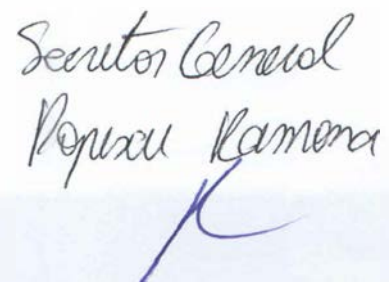 Secretor General
Popescu Ramona